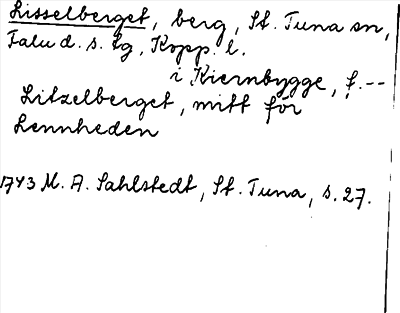 Lisselberget, berg, St. Tuna sn,
Falu d. s. tg, Kopp. l.
i Kiernbygge, f.--
Litzelberget, mitt för
Lennheden
1743 M. A. Sahlstedt, St. Tuna, s. 27.